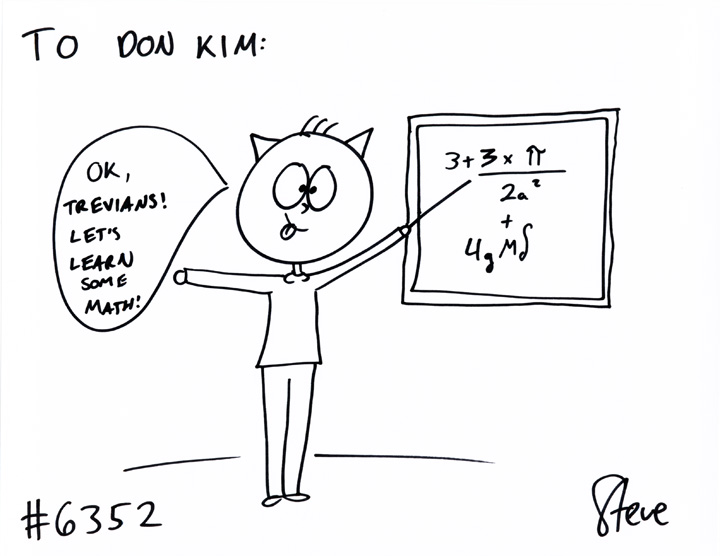 TO DON KIM:
OK,
TREVIANS!
LET'S
LEARN
SOME
MATH!
3+3×π
2a²
+
4gMδ
#6352
Steve